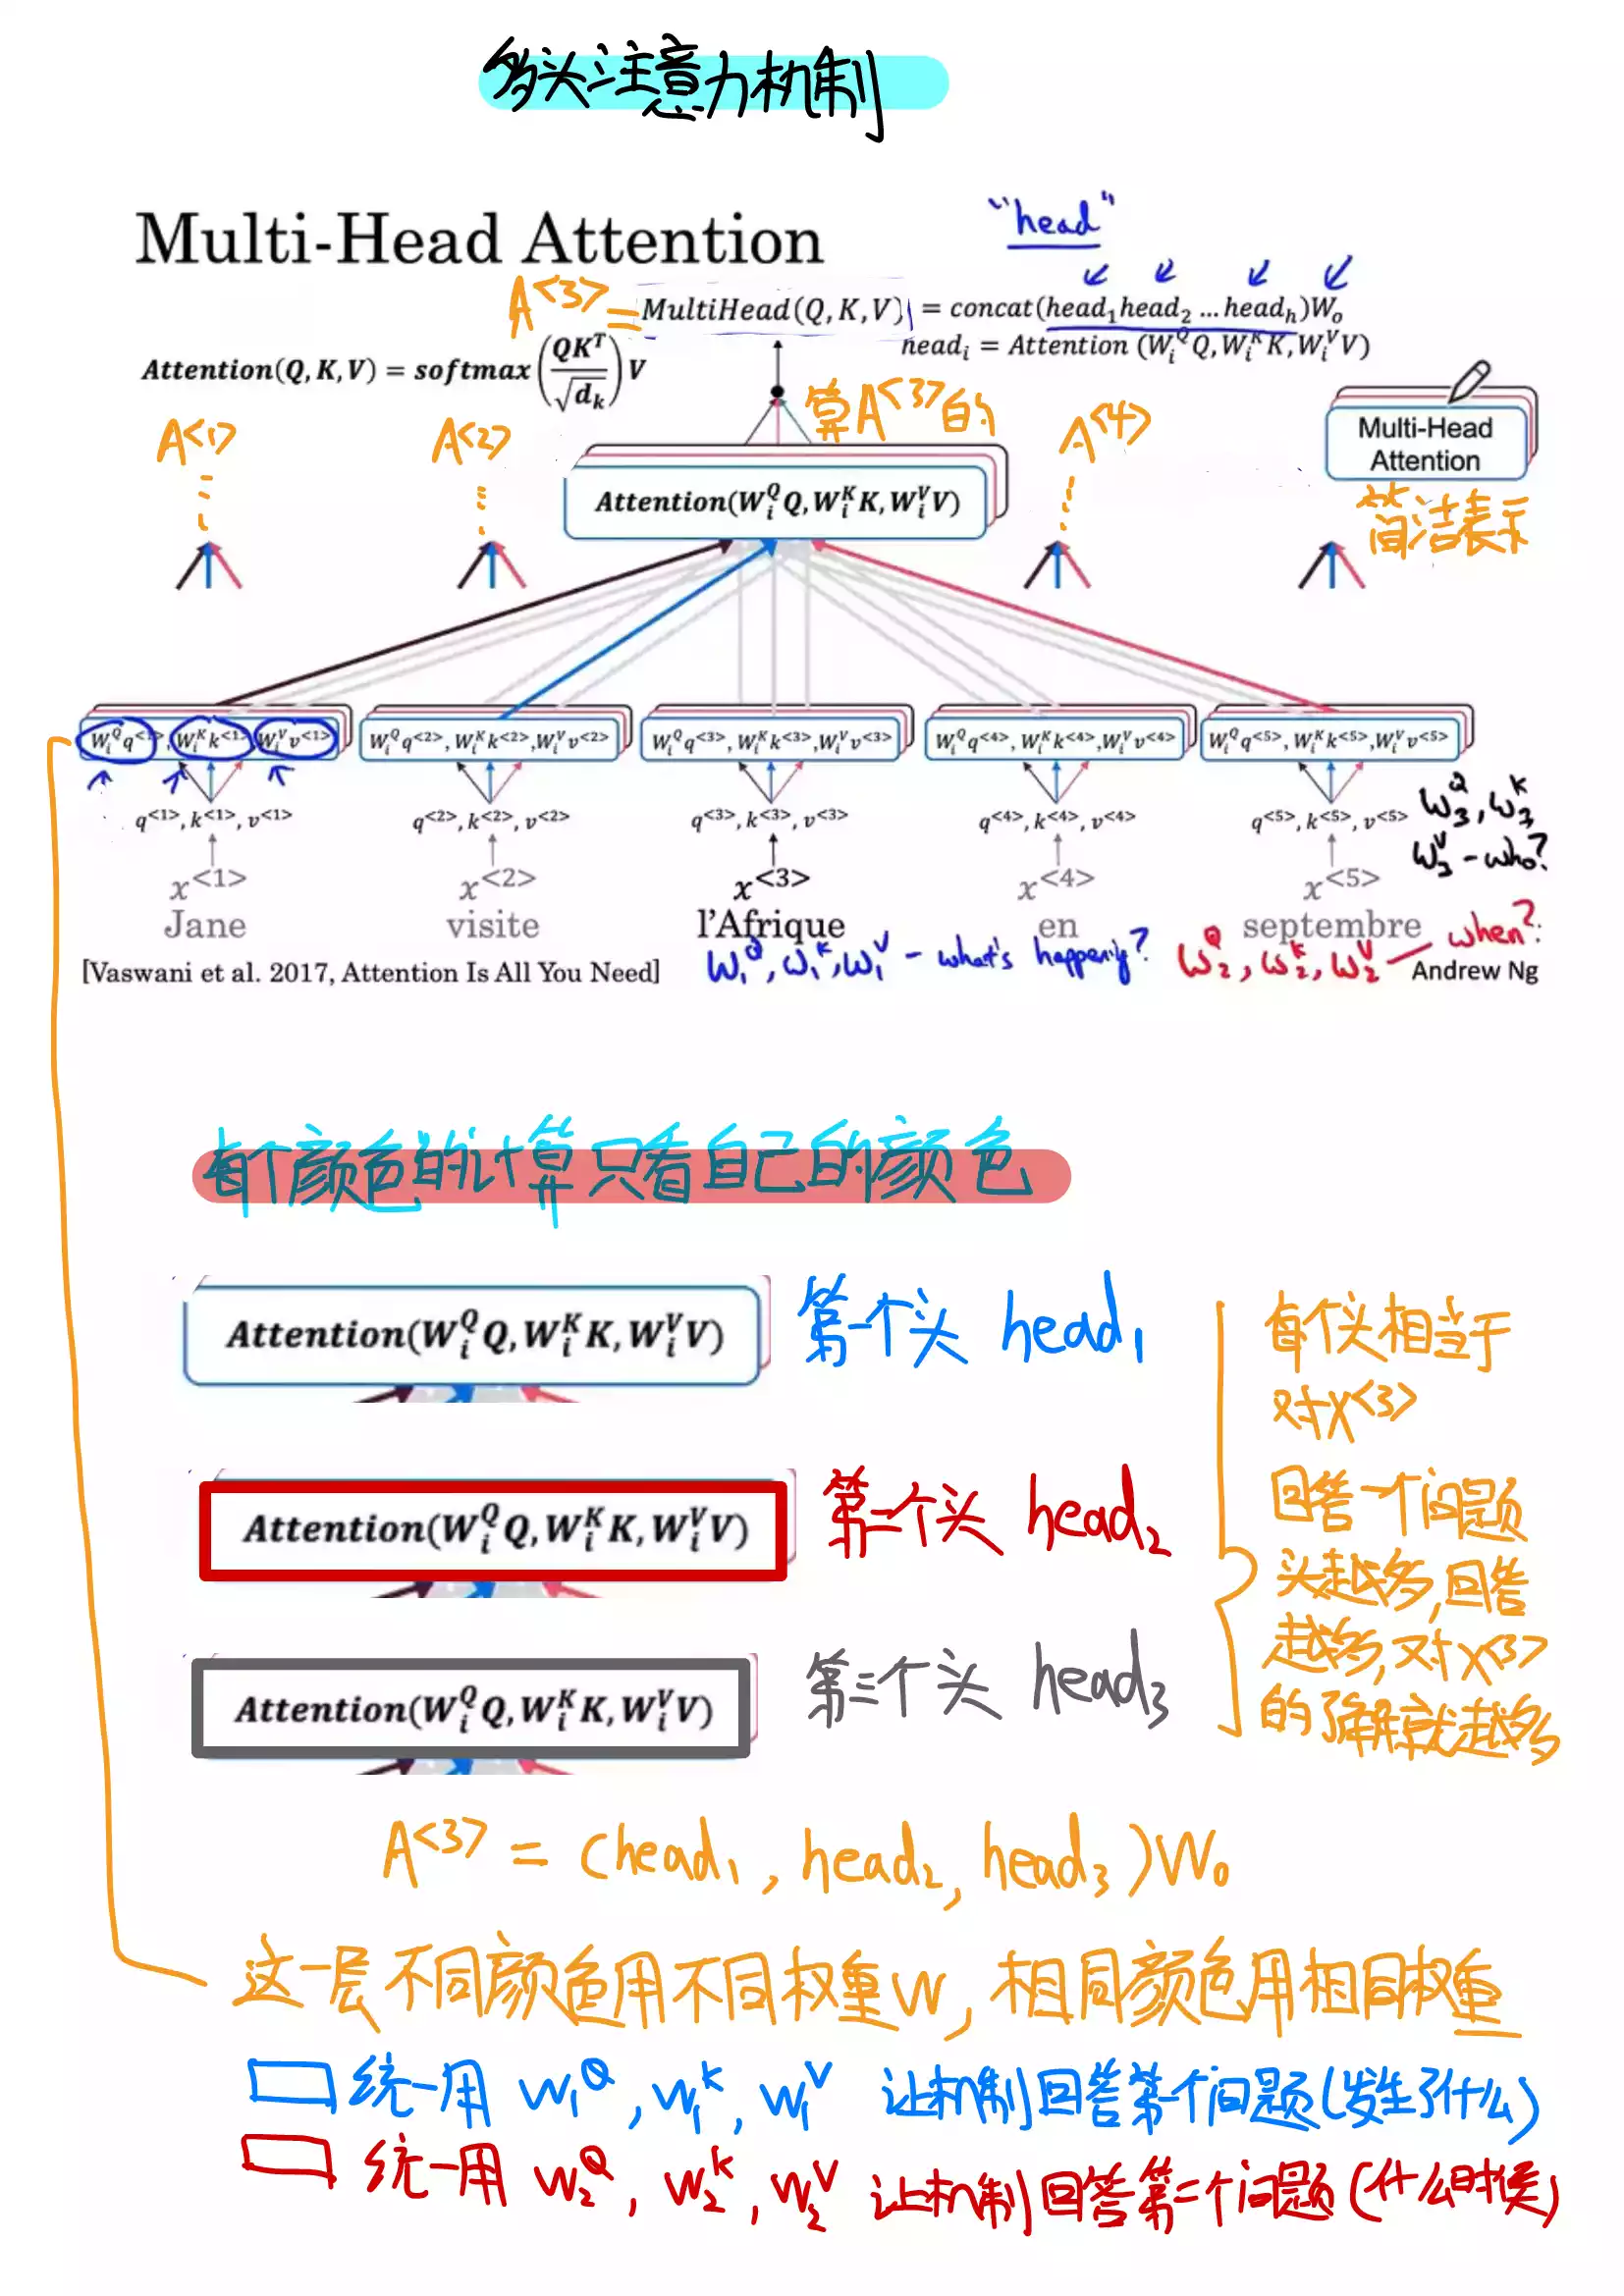 多头注意力机制
Multi-Head Attention
"head"
A<3> = MultiHead(Q, K, V) = concat(head₁head₂ ... headₕ)Wₒ
headᵢ = Attention (Wᵢ^Q Q, Wᵢ^K K, Wᵢ^V V)
Attention(Q, K, V) = softmax(QK^T / √dₖ) V
A<1>
A<2>
算A<3>的
A<4>
Multi-Head
Attention
简洁表示
Attention(Wᵢ^Q Q, Wᵢ^K K, Wᵢ^V V)
Wᵢ^Q q^<1>, Wᵢ^K k^<1>, Wᵢ^V v^<1>
Wᵢ^Q q^<2>, Wᵢ^K k^<2>, Wᵢ^V v^<2>
Wᵢ^Q q^<3>, Wᵢ^K k^<3>, Wᵢ^V v^<3>
Wᵢ^Q q^<4>, Wᵢ^K k^<4>, Wᵢ^V v^<4>
Wᵢ^Q q^<5>, Wᵢ^K k^<5>, Wᵢ^V v^<5>
q^<1>, k^<1>, v^<1>
q^<2>, k^<2>, v^<2>
q^<3>, k^<3>, v^<3>
q^<4>, k^<4>, v^<4>
q^<5>, k^<5>, v^<5>
W₃^Q, W₃^K
W₃^V - who?
x^<1>
x^<2>
x^<3>
x^<4>
x^<5>
Jane
visite
l'Afrique
en
septembre
[Vaswani et al. 2017, Attention Is All You Need]
W₁^Q, W₁^K, W₁^V - what's happening?
W₂^Q, W₂^K, W₂^V - when?
Andrew Ng
每个颜色的计算只看自己的颜色
Attention(Wᵢ^Q Q, Wᵢ^K K, Wᵢ^V V)
第一个头 head₁
Attention(Wᵢ^Q Q, Wᵢ^K K, Wᵢ^V V)
第二个头 head₂
Attention(Wᵢ^Q Q, Wᵢ^K K, Wᵢ^V V)
第三个头 head₃
每个头相当于
对X<3>
回答一个问题
头越多,回答
越多,对X<3>
的了解就越多
A<3> = (head₁, head₂, head₃)W₀
这一层不同颜色用不同权重W, 相同颜色用相同权重
统一用 W₁^Q, W₁^K, W₁^V 让机制回答第一个问题(发生了什么)
统一用 W₂^Q, W₂^K, W₂^V 让机制回答第二个问题(什么时候)